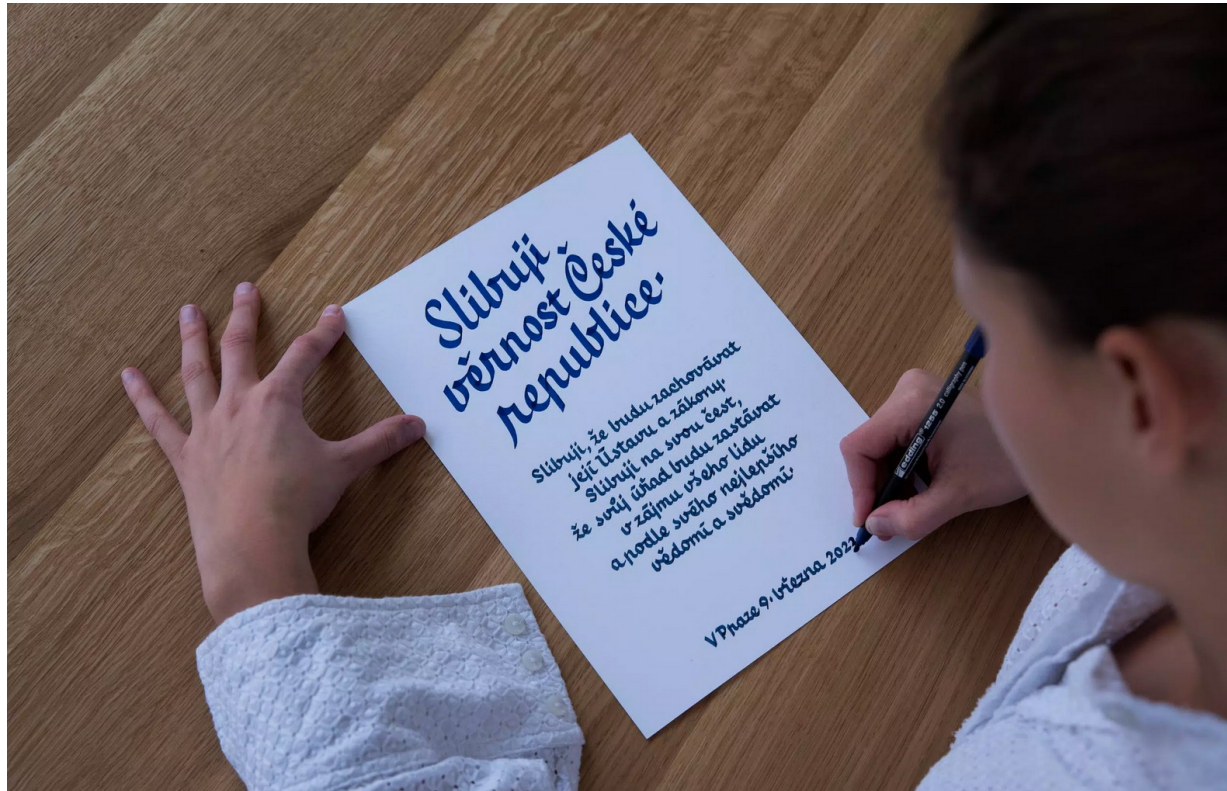 Slibuji
věrnost České
republice.
Slibuji, že budu zachovávat
její Ústavu a zákony.
Slibuji na svou čest,
že svůj úřad budu zastávat
v zájmu všeho lidu
a podle svého nejlepšího
vědomí a svědomí.
V Praze 9. března
edding 1255 2.0 calligraphy pen